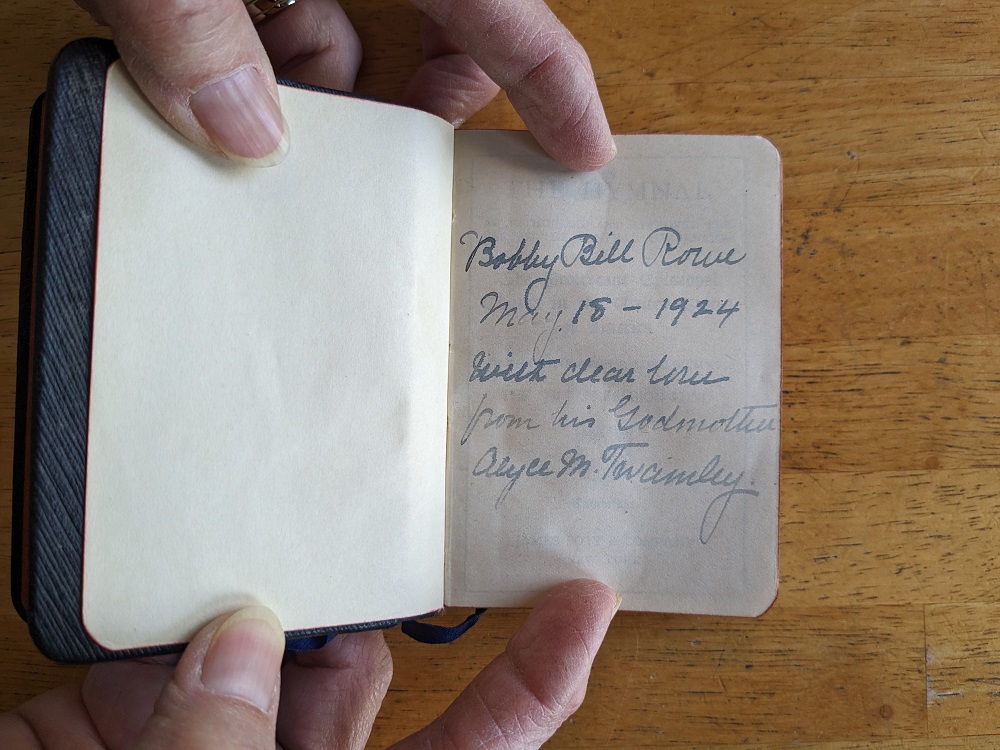 THE HYMNAL
Bobby Bill Rowe
May 18 - 1924
With dear love
from his Godmother
Alyce M. Twamley.